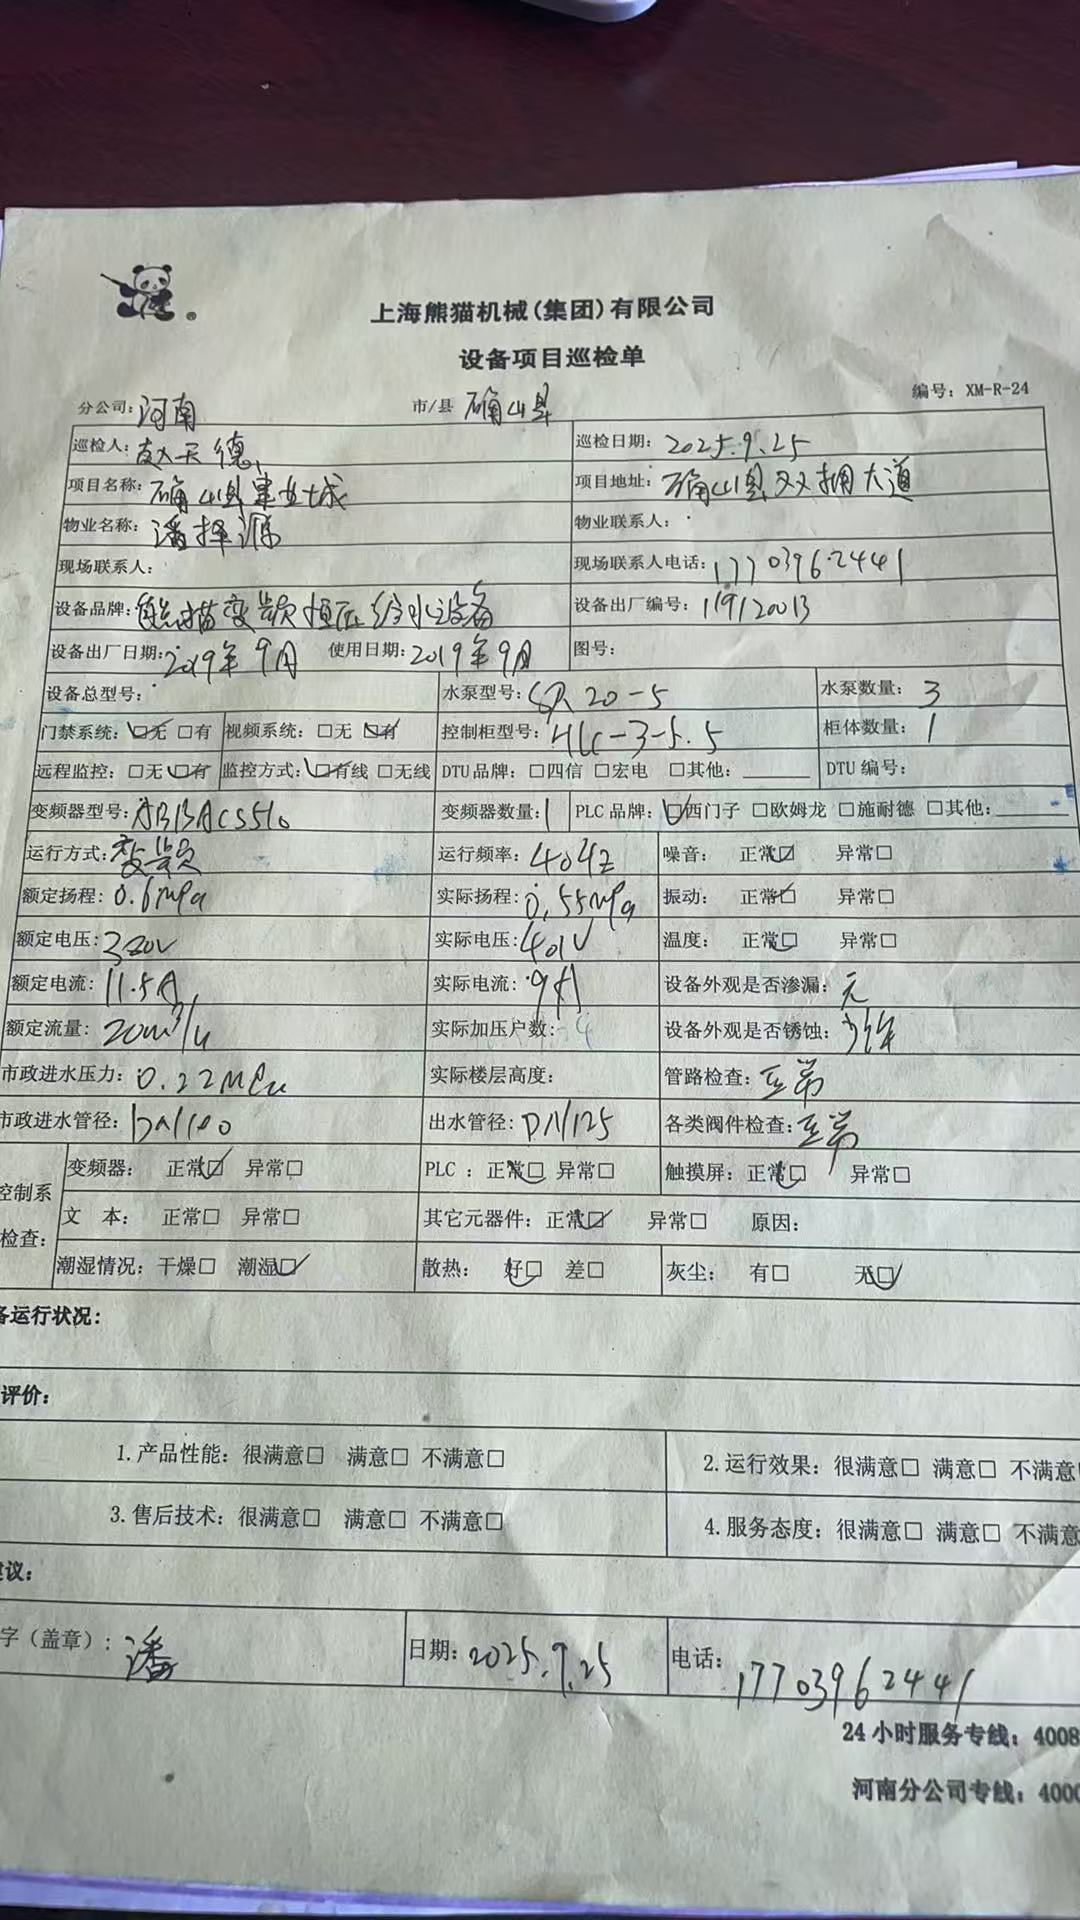 上海熊猫机械(集团)有限公司
设备项目巡检单
编号: XM-R-24
分公司: 河南 市/县 确山县
巡检人: 赵天德 巡检日期: 2025.9.25
项目名称: 确山县建业城 项目地址: 确山县双拥大道
物业名称: 潘择源 物业联系人:
现场联系人: 现场联系人电话: 17703962441
设备品牌: 熊猫变频恒压给水设备 设备出厂编号: 119120013
设备出厂日期: 2019年9月 使用日期: 2019年9月 图号:
设备总型号: 水泵型号: SR 20-5 水泵数量: 3
门禁系统: ☑无 □有 视频系统: □无 ☑有 控制柜型号: HLC-3-5.5 柜体数量: 1
远程监控: □无 ☑有 监控方式: ☑有线 □无线 DTU品牌: □四信 □宏电 □其他: DTU编号:
变频器型号: ABBACS510 变频器数量: 1 PLC品牌: ☑西门子 □欧姆龙 □施耐德 □其他:
运行方式: 变频 运行频率: 40Hz 噪音: 正常☑ 异常□
额定扬程: 0.6MPa 实际扬程: 0.55MPa 振动: 正常☑ 异常□
额定电压: 320V 实际电压: 401V 温度: 正常☑ 异常□
额定电流: 11.5A 实际电流: 9A 设备外观是否渗漏: 无
额定流量: 20m³/h 实际加压户数: 设备外观是否锈蚀:
市政进水压力: 0.22MPa 实际楼层高度: 管路检查: 正常
市政进水管径: 出水管径: DN125 各类阀件检查: 正常
控制系 变频器: 正常☑ 异常□ PLC : 正常☑ 异常□ 触摸屏: 正常☑ 异常□
检查: 文 本: 正常□ 异常□ 其它元器件: 正常☑ 异常□ 原因:
潮湿情况: 干燥□ 潮湿☑ 散热: 好☑ 差□ 灰尘: 有□ 无☑
备运行状况:
评价:
1.产品性能: 很满意□ 满意□ 不满意□ 2.运行效果: 很满意□ 满意□ 不满意□
3.售后技术: 很满意□ 满意□ 不满意□ 4.服务态度: 很满意□ 满意□ 不满意
建议:
字(盖章): 潘 日期: 2025.9.25 电话: 17703962441
24小时服务专线: 4008
河南分公司专线: 4000